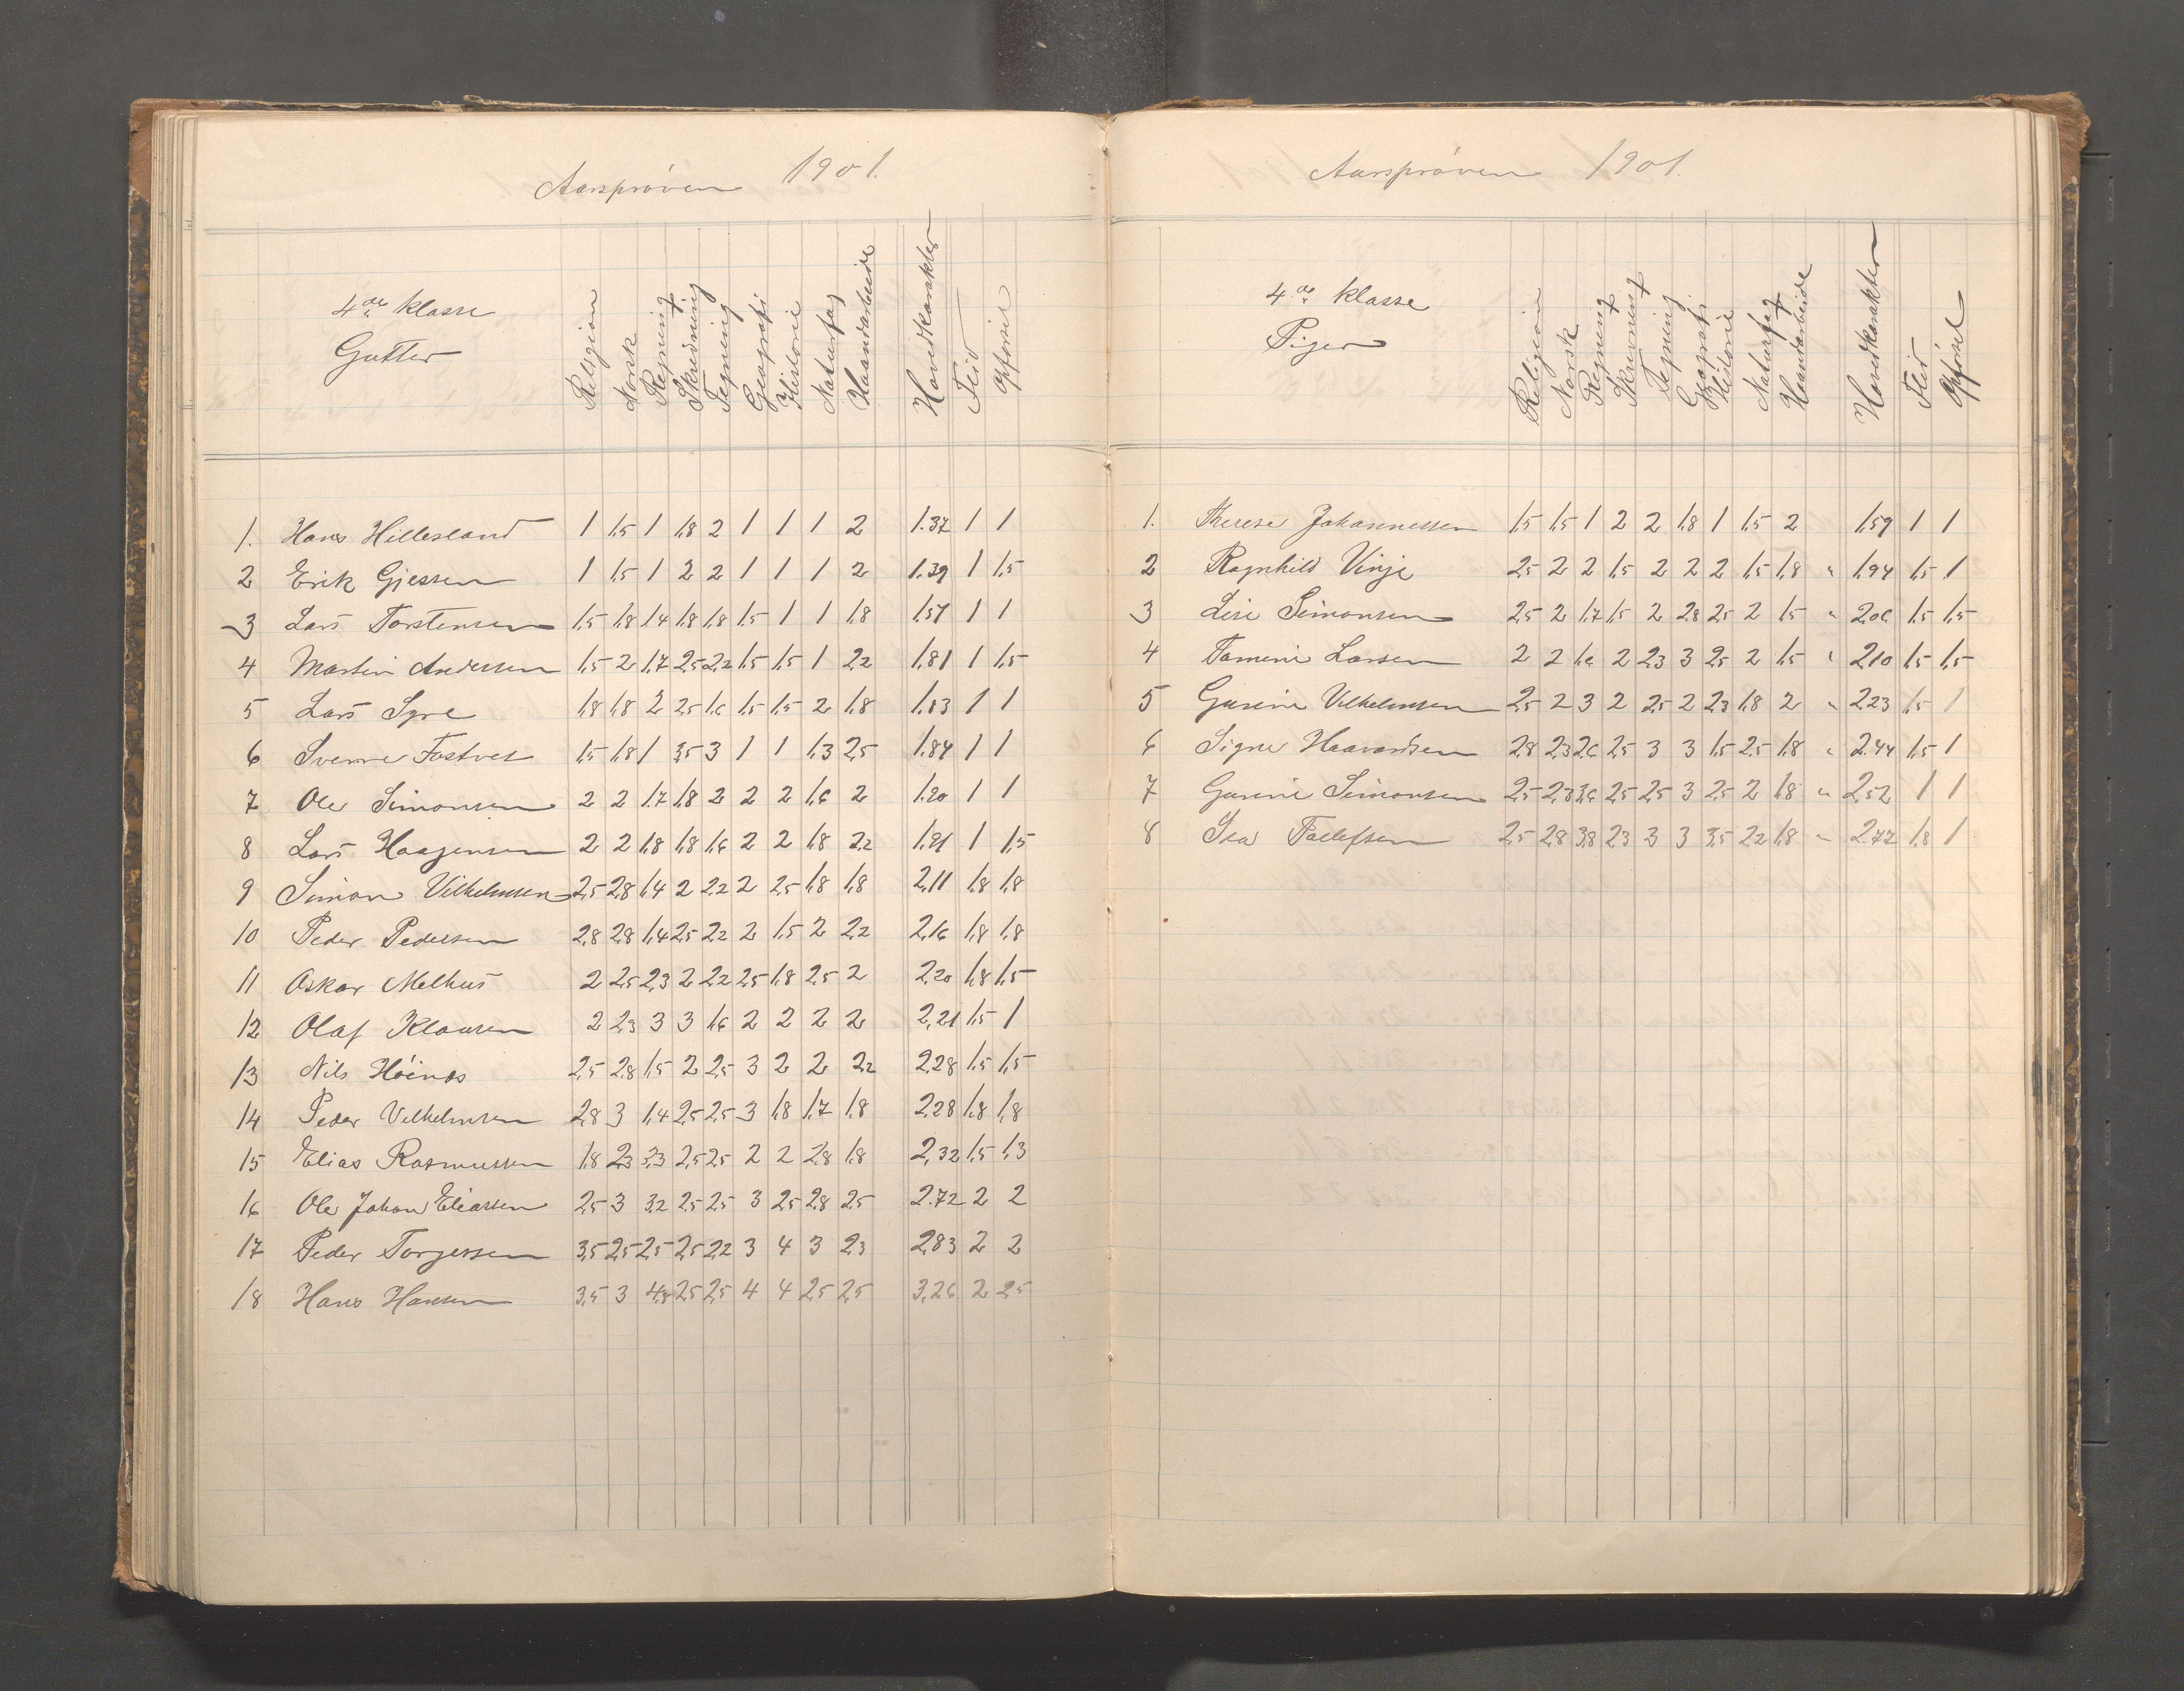 Aarsprøven 1901.
4de klasse
Gutter
Religion Norsk Regning Skrivning Tegning Geografi Historie Naturfag Haandarbeide Hovedkarakter Flid Opførsel
1. Hans Hillesland 1 1,5 1 1,8 2 1 1 1 2 1.37 1 1
2 Erik Gjessen 1 1,5 1 2 2 1 1 1 2 1.39 1 1,5
3 Lars Torstensen 1,5 1,8 1,4 1,8 1,8 1,5 1 1 1,8 1,57 1 1
4 Martin Andersen 1,5 2 1,7 2,5 2,2 1,5 1,5 1 2,2 1,81 1 1,5
5 Lars Syre 1,8 1,8 2 2,5 1,6 1,5 1,5 2 1,8 1,83 1 1
6 Sverre 1,5 1,8 1 3,5 3 1 1 1,3 2,5 1,84 1 1
7 Ole Simonsen 2 2 1,7 1,8 2 2 2 1,6 2 1.90 1 1
8 Lars Haagensen 2 2 1,8 1,8 1,6 2 2 1,8 2,2 1.91 1 1,5
9 Simon Vilhelmsen 2,5 2,8 1,4 2 2,2 2 2,5 1,8 1,8 2,11 1,8 1,8
10 Peder Pedersen 2,8 2,8 1,4 2,5 2,2 2 1,5 2 2,2 2,16 1,8 1,8
11 Oskar Melhus 2 2,5 2,3 2 2,2 2,5 1,8 2,5 2 2,20 1,8 1,5
12 Olaf Klausen 2 2,3 3 3 1,6 2 2 2 2 2,21 1,5 1
13 Nils Høines 2,5 2,8 1,5 2 2,5 3 2 2 2,2 2,28 1,5 1,5
14 Peder Vilhelmsen 2,8 3 1,4 2,5 2,5 3 1,8 1,7 1,8 2,28 1,8 1,8
15 Elias Rasmussen 1,8 2,3 3,3 2,5 2,5 2 2 2,8 1,8 2,32 1,5 1,3
16 Ole Johan Eliassen 2,5 3 3,2 2,5 2,5 3 2,5 2,8 2,5 2.72 2 2
17 Peder Torgersen 3,5 2,5 2,5 2,5 2,2 3 4 3 2,3 2,83 2 2
18 Hans Hansen 3,5 3 4,8 2,5 2,5 4 4 2,5 2,5 3,26 2 2,5
Aarsprøven 1901.
4de klasse
Piger
Religion Norsk Regning Skrivning Tegning Geografi Historie Naturfag Haandarbeide Hovedkarakter Flid Opførsel
1. Therese Johannessen 1,5 1,5 1 2 2 1,8 1 1,5 2 1,59 1 1
2 Ragnhild Vinje 2,5 2 2 1,5 2 2 2 1,5 1,8 " 1,94 1,5 1
3 Lise Simonsen 2,5 2 1,7 1,5 2 2,8 2,5 2 1,5 " 2,06 1,5 1,5
4 Tomine Larsen 2 2 1,6 2 2,3 3 2,5 2 1,5 " 2,10 1,5 1,5
5 Gurine Vilhelmsen 2,5 2 3 2 2,5 2 2,3 1,8 2 " 2,23 1,5 1
6 Signe Haavardsen 2,8 2,3 2,6 2,5 3 3 1,5 2,5 1,8 " 2.44 1,5 1
7 Gurine Simonsen 2,5 2,3 3,6 2,5 2,5 3 2,5 2 1,8 " 2,52 1 1
8 Ida Tollefsen 2,5 2,8 3,8 2,3 3 3 3,5 2,2 1,8 " 2.77 1,8 1